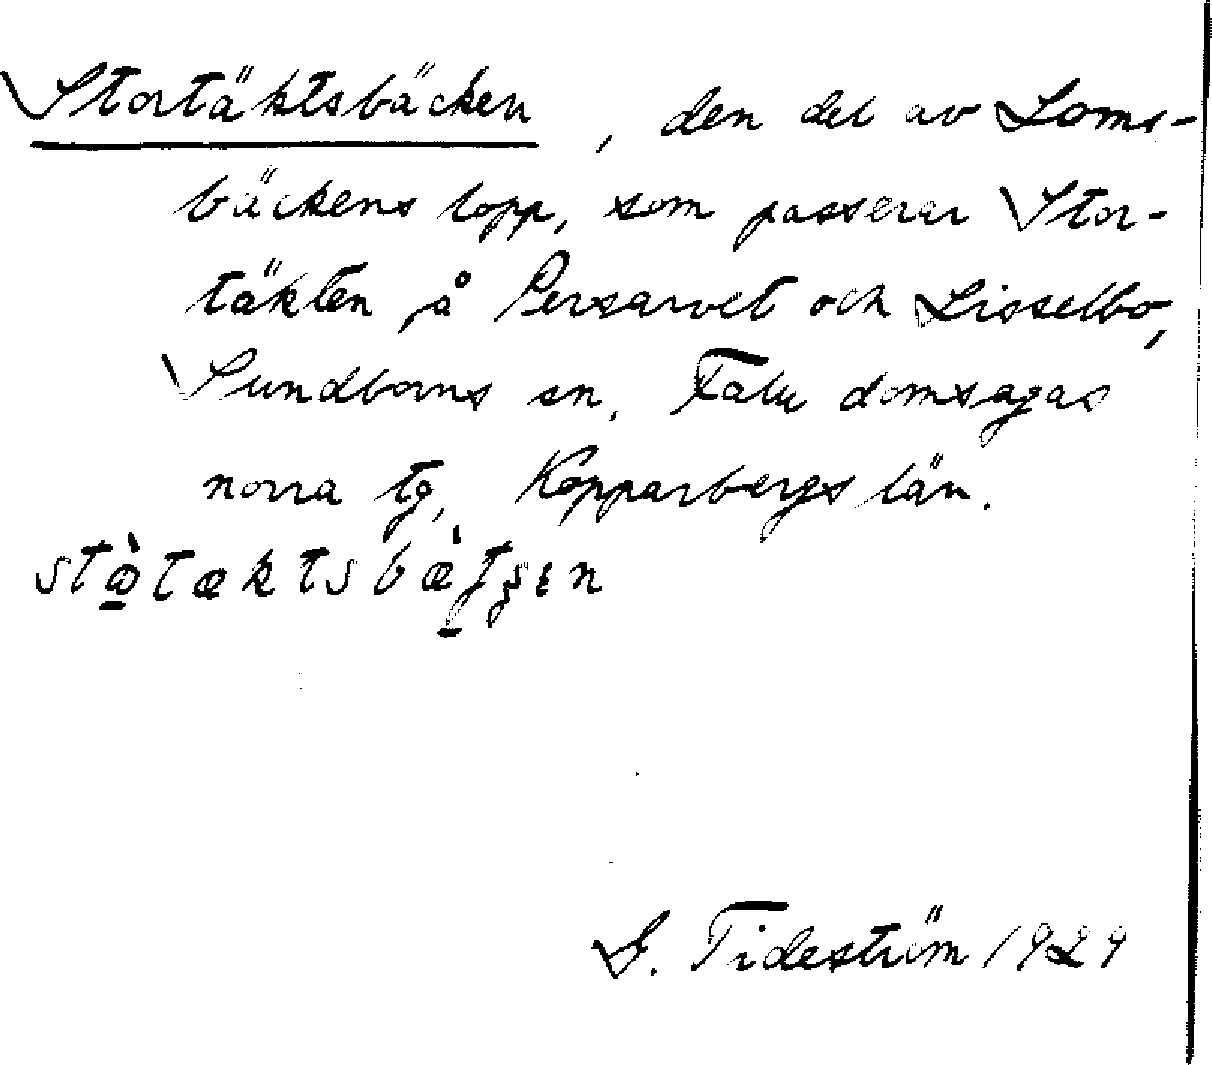 Stortäktsbäcken, den del av Loms-
bäckens lopp, som passerar Stor-
täkten, å Persarvet och Lisselbo,
Sundborns sn, Falu domsagas
norra tg, Kopparbergs län.
G. Tideström 1929